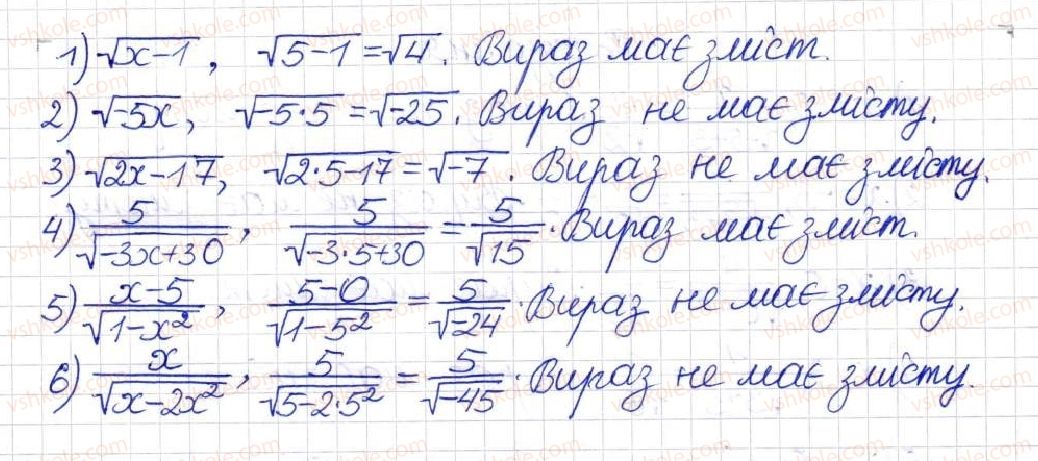 1) √x-1, √5-1=√4. Вираз має зміст.
2) √-5x, √-5·5=√-25. Вираз не має змісту.
3) √2x-17, √2·5-17=√-7. Вираз не має змісту.
4) 5/√-3x+30, 5/√-3·5+30=5/√15. Вираз має зміст.
5) x-5/√1-x², 5-0/√1-5²=5/√-24. Вираз не має змісту.
6) x/√x-2x², 5/√5-2·5²=5/√-45. Вираз не має змісту.